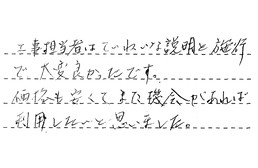 工事担当者はていねいな説明と施行
で大変良かったです。
価格も安くてまた機会があれば
利用したいと思いました。